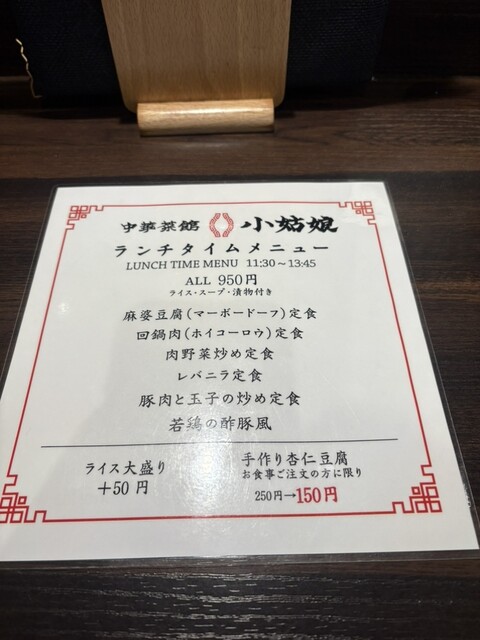 中華菜館 小姑娘
ランチタイムメニュー
LUNCH TIME MENU 11:30～13:45
ALL 950円
ライス・スープ・漬物付き
麻婆豆腐(マーボードーフ)定食
回鍋肉(ホイコーロウ)定食
肉野菜炒め定食
レバニラ定食
豚肉と玉子の炒め定食
若鶏の酢豚風
ライス大盛り
+50円
手作り杏仁豆腐
お食事ご注文の方に限り
250円→150円